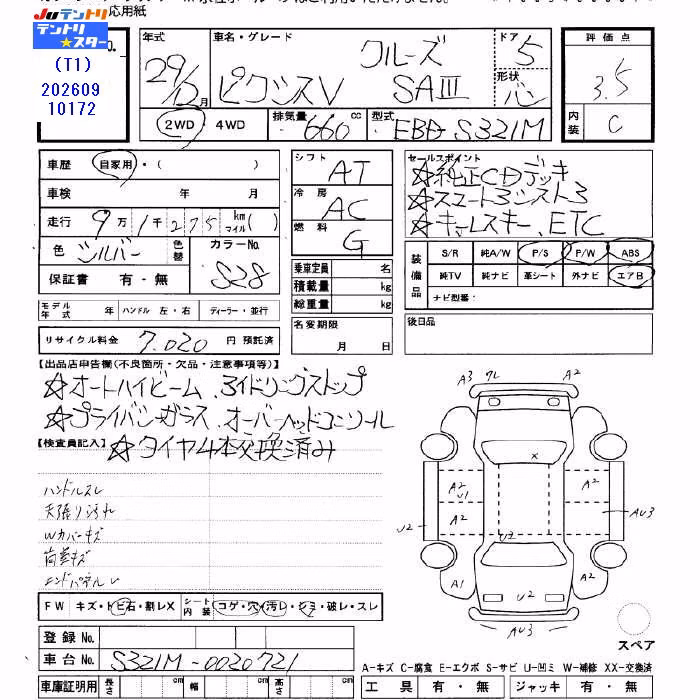 Juテントリ
テントリ
☆スター
(T1)
202609
10172
応用紙
年式 車名・グレード ドア 5 評価点
29/12月 ピクシスV クルーズ SAIII 形状 バン 3.5
2WD・4WD 排気量 660cc 型式 EBD-S321M 内装 C
車歴 自家用・( ) シフト AT セールスポイント
☆純正CDデッキ
車検 年 月 冷房 AC ☆スマートアシスト3
走行 9万1千275 km マイル( ) 燃料 G ☆キーレスキー、ETC
色 シルバー 色替 カラーNo. S28
保証書 有・無
乗車定員 名
積載量 kg
総重量 kg
装備品 S/R 純A/W P/S P/W ABS
純TV 純ナビ 革シート 外ナビ エアB
ナビ型番:
モデル年式 年 ハンドル 左・右 ディーラー・並行
名変期限 月 日
後日品
リサイクル料金 7,020 円 預託済
【出品店申告欄(不良箇所・欠品・注意事項等)】
☆オートハイビーム、アイドリングストップ
☆プライバシーガラス、オーバーヘッドコンソール
【検査員記入】 ☆タイヤ4本交換済み
ハンドルスレ
天張り汚れ
Wカバーキズ
荷室キズ
エンドパネルU
A3 ワレ A2
A2 A2
X
A2 U1 A2
U2 A2 AU3
U2
A1 U2 A2
AU3
FW キズ・トビ石・割レX シート内装 コゲ・穴・汚レ・シミ・破レ・スレ
登録No.
車台No. S321M-0020721
スペア
A-キズ C-腐食 E-エクボ S-サビ U-凹ミ W-補修 XX-交換済
車庫証明用 長さ cm 幅 cm 高さ cm 工具 有・無 ジャッキ 有・無